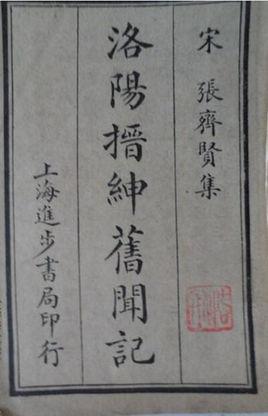 宋 張齊賢集
洛陽搢紳舊聞記
上海進步書局印行